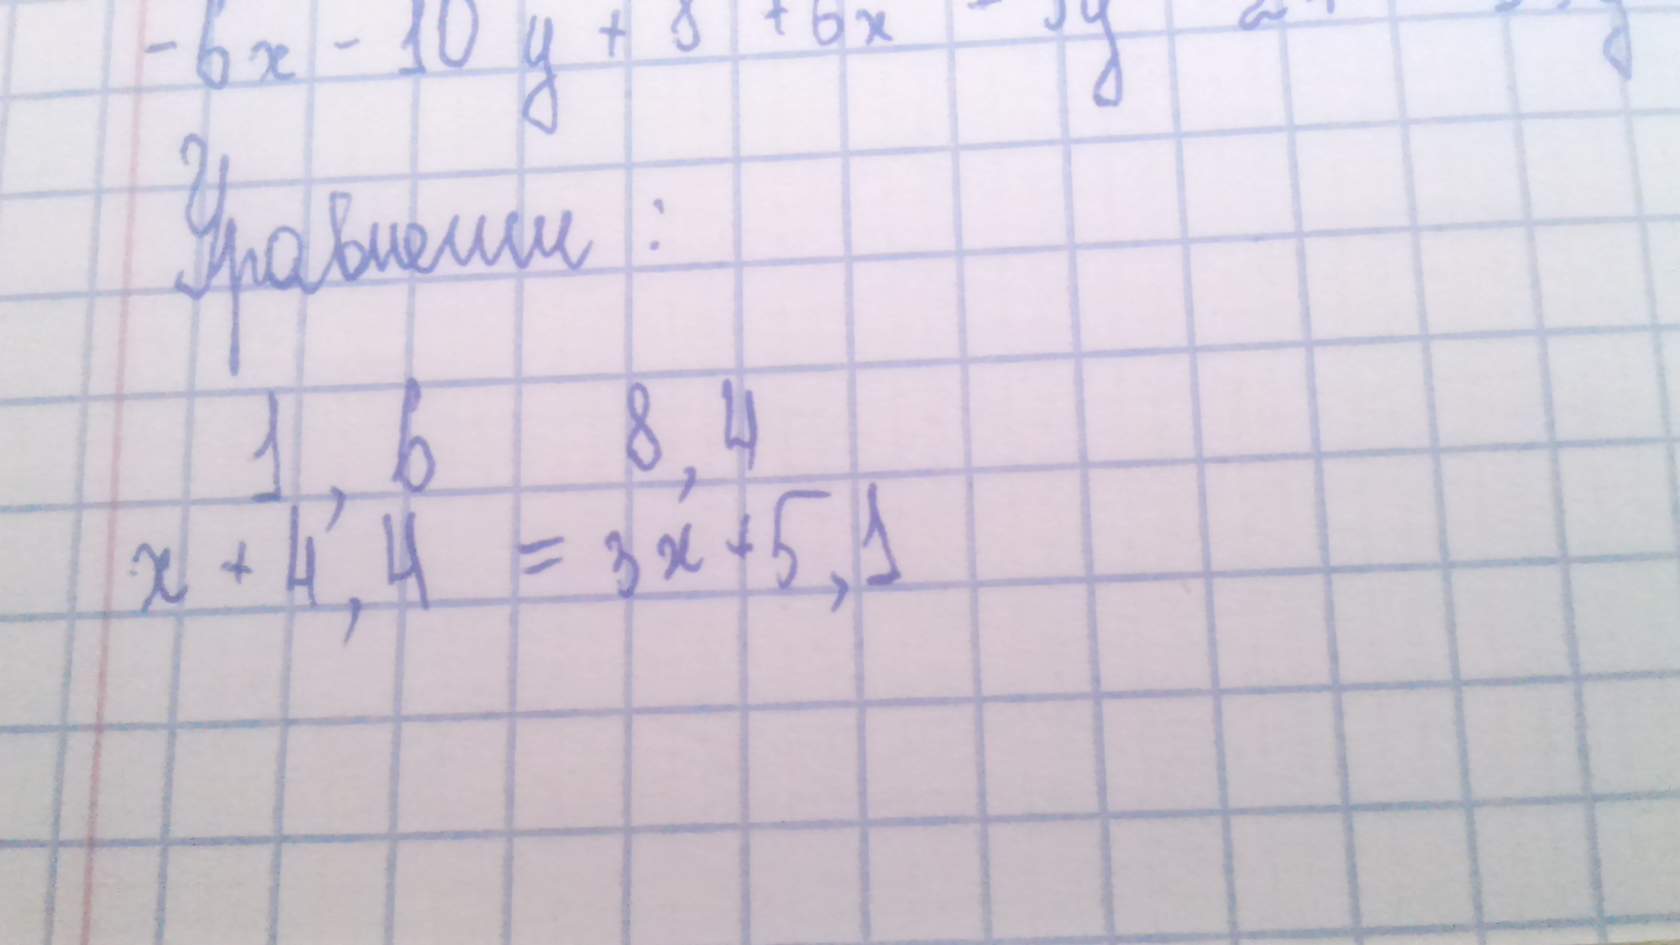 -6x - 10y + 8 + 6x - 3y
Уравнении :
1,6 8,4
x + 4,4 = 3x + 5,1